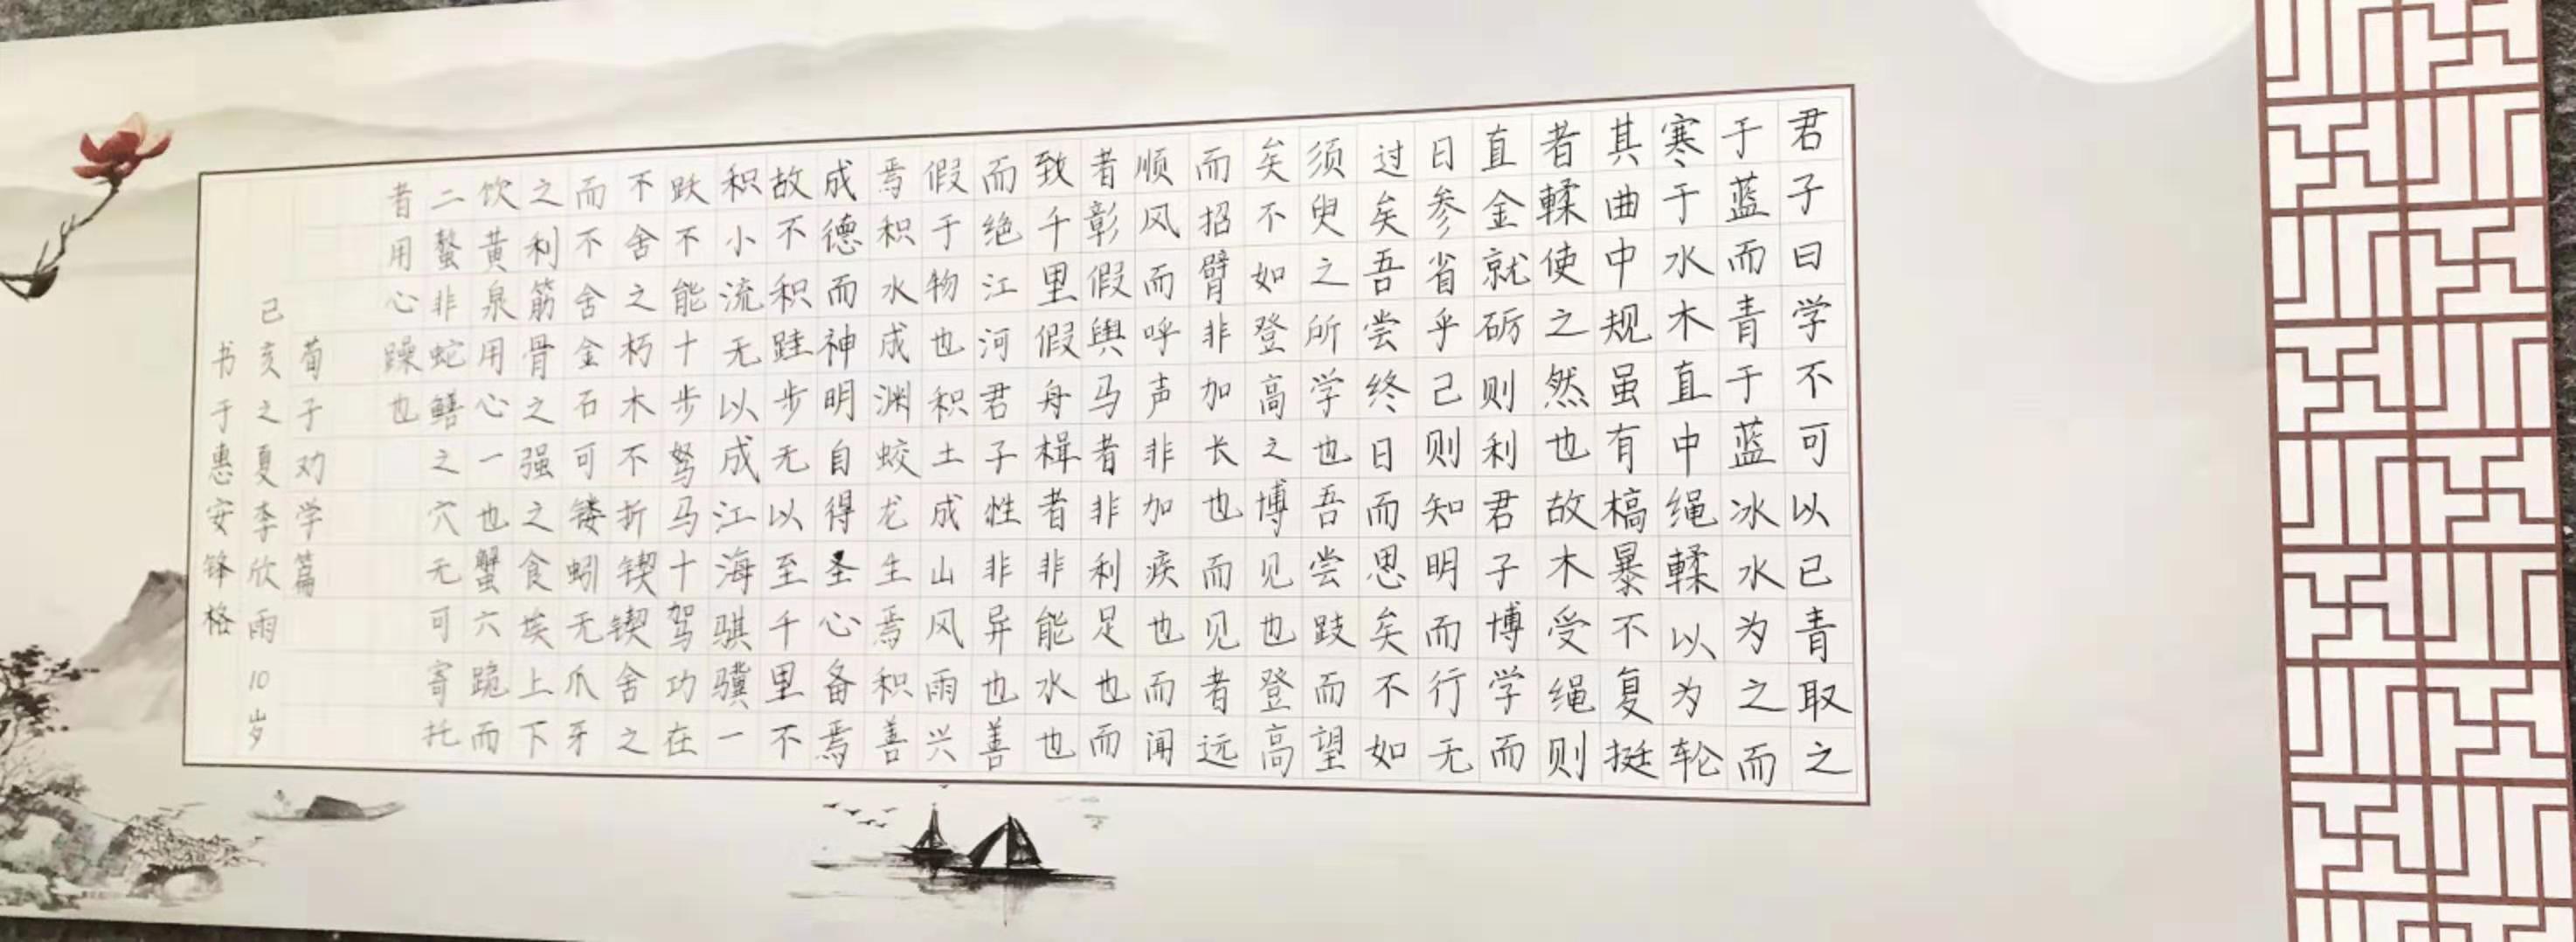 君子曰学不可以已青取之
于蓝而青于蓝冰水为之而
寒于水木直中绳輮以为轮
其曲中规虽有槁暴不复挺
者輮使之然也故木受绳则
直金就砺则利君子博学而
日参省乎己则知明而行无
过矣吾尝终日而思矣不如
须臾之所学也吾尝跂而望
矣不如登高之博见也登高
而招臂非加长也而见者远
顺风而呼声非加疾也而闻
者彰假舆马者非利足也而
致千里假舟楫者非能水也
而绝江河君子性非异也善
假于物也积土成山风雨兴
焉积水成渊蛟龙生焉积善
成德而神明自得圣心备焉
故不积跬步无以至千里不
积小流无以成江海骐骥一
跃不能十步驽马十驾功在
不舍之朽木不折锲锲舍之
而不舍金石可镂蚓无爪牙
之利筋骨之强之食埃上下
饮黄泉用心一也蟹六跪而
二螯非蛇鳝之穴无可寄托
者用心躁也
荀子劝学篇
己亥之夏李欣雨10岁
书于惠安锋格